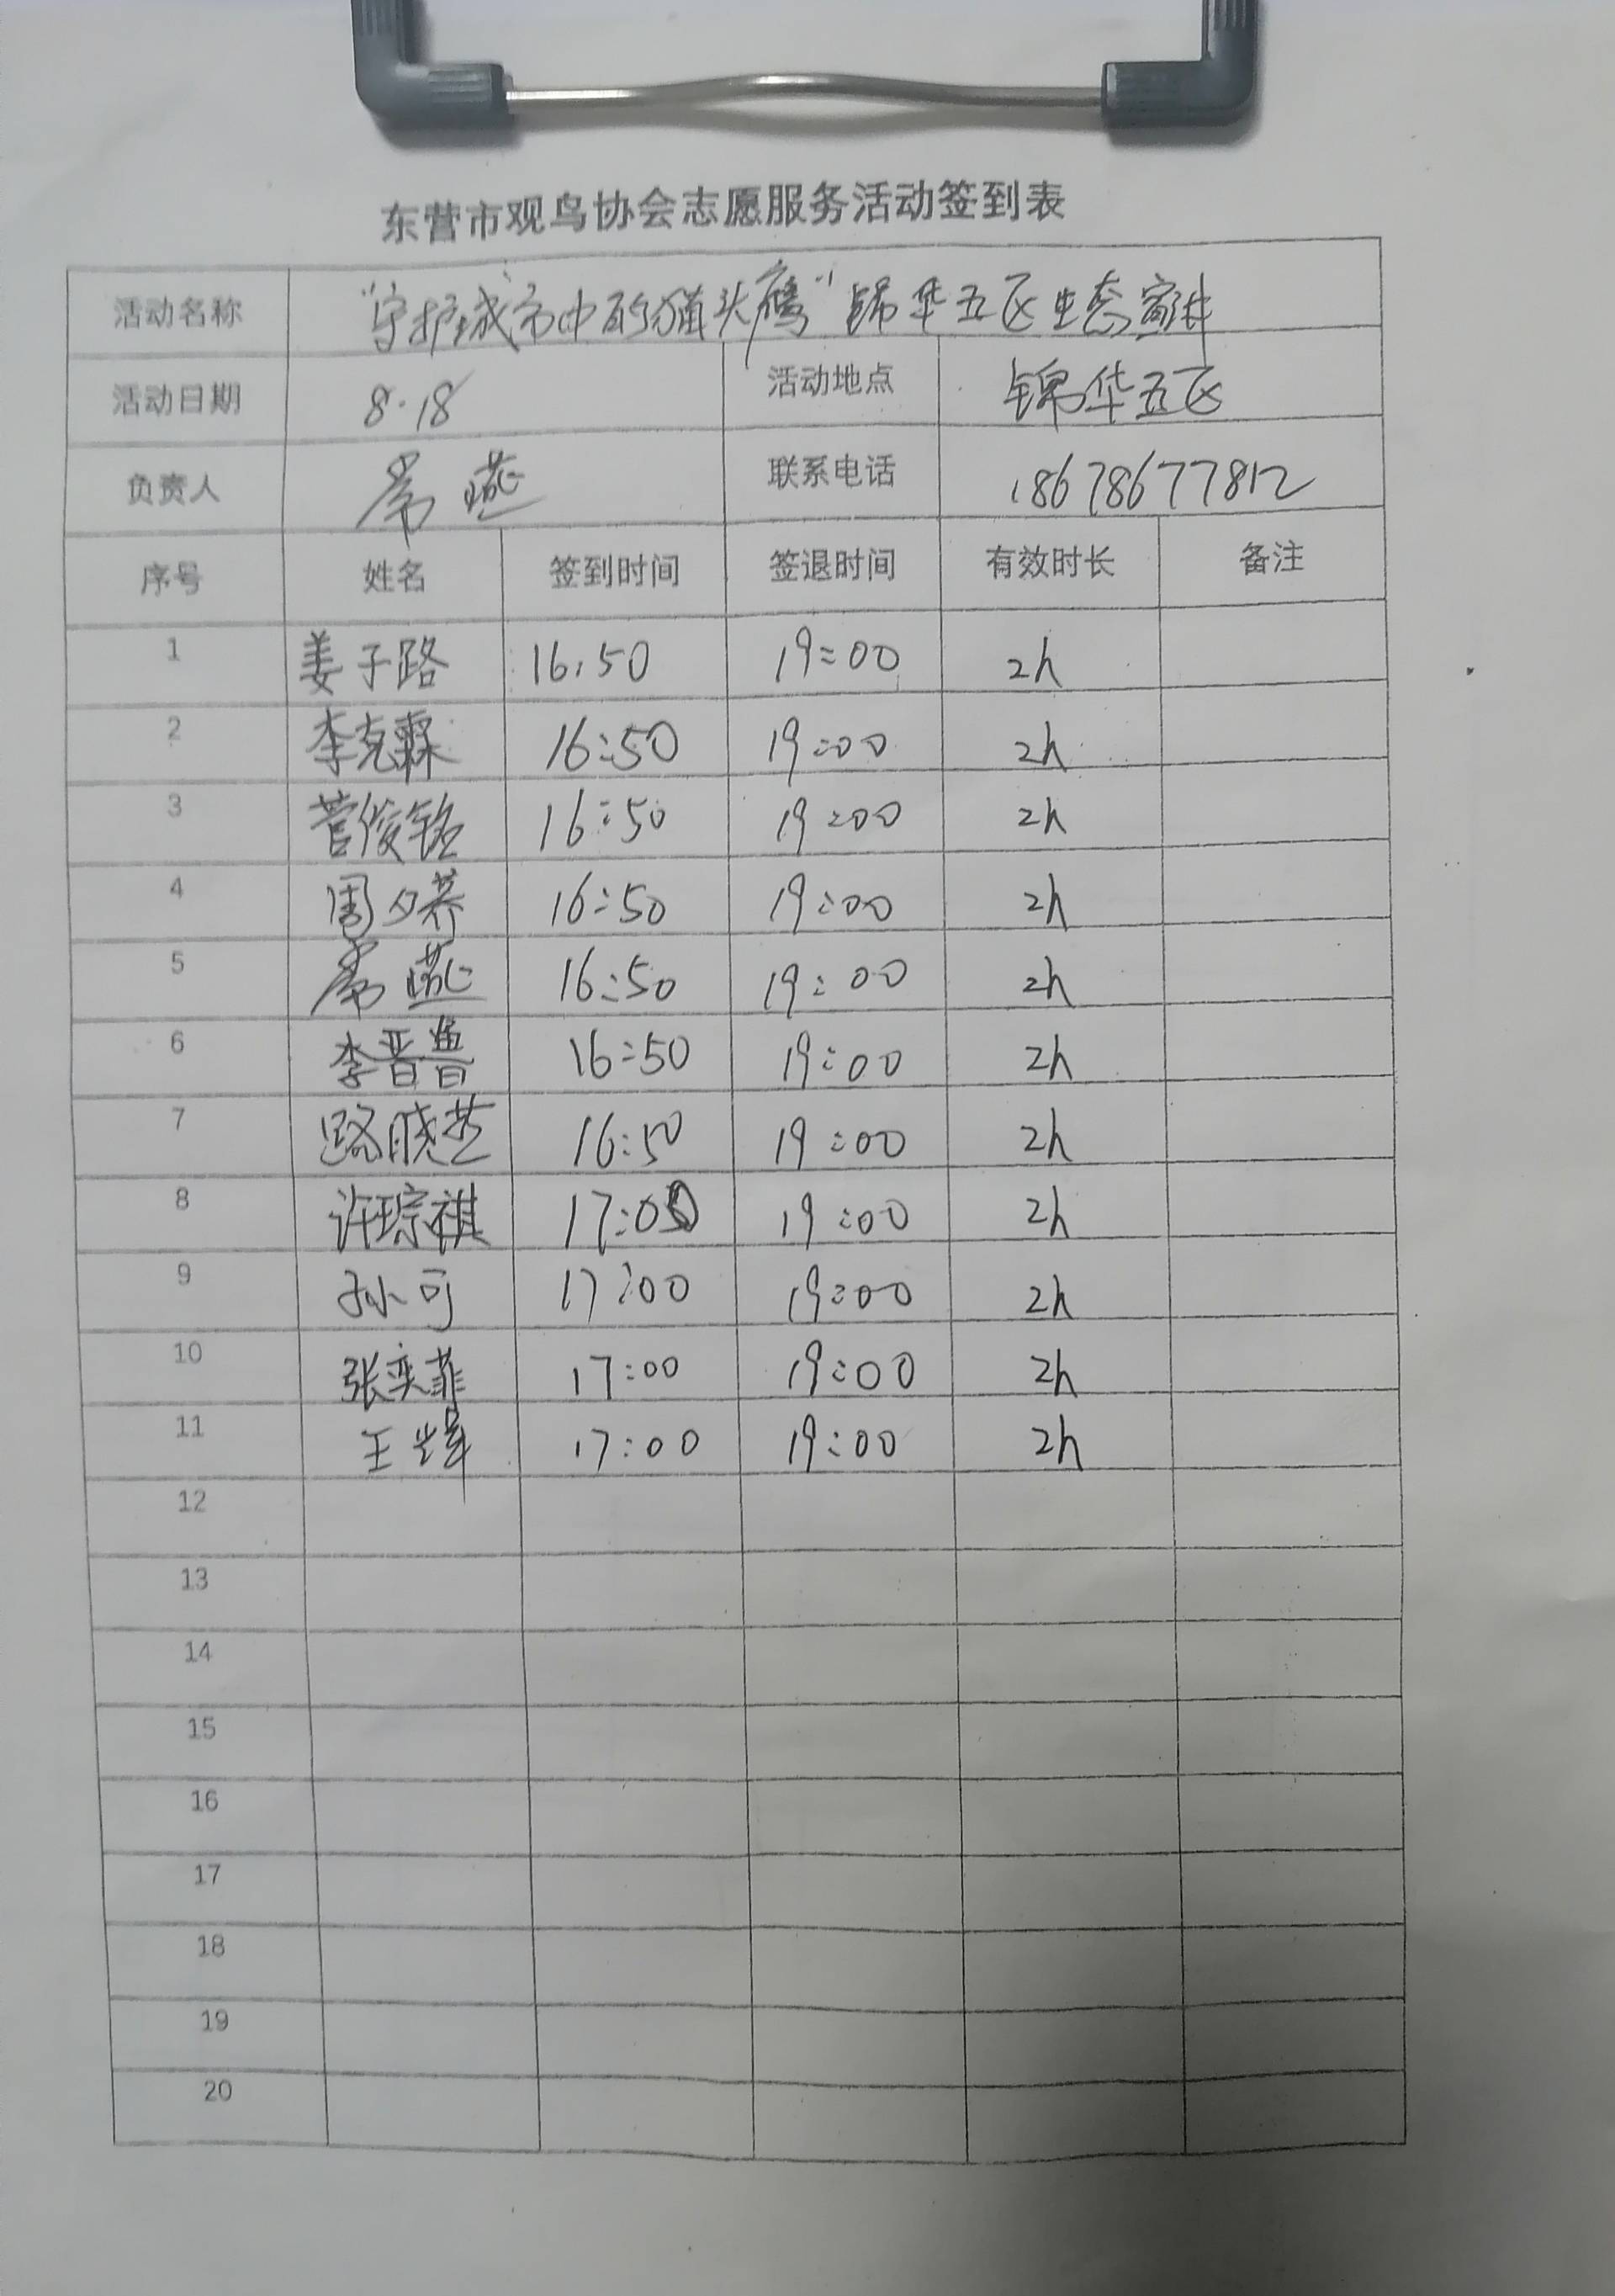 东营市观鸟协会志愿服务活动签到表
活动名称 "守护城市中的猫头鹰"锦华五区生态宣讲
活动日期 8.18 活动地点 锦华五区
负责人 常燕 联系电话 18678677812
序号 姓名 签到时间 签退时间 有效时长 备注
1 姜子路 16:50 19:00 2h
2 李克霖 16:50 19:00 2h
3 菅俊铭 16:50 19:00 2h
4 周夕荞 16:50 19:00 2h
5 常燕 16:50 19:00 2h
6 李晋鲁 16:50 19:00 2h
7 路晓芝 16:50 19:00 2h
8 许琮祺 17:00 19:00 2h
9 孙可 17:00 19:00 2h
10 张奕菲 17:00 19:00 2h
11 王 17:00 19:00 2h
12
13
14
15
16
17
18
19
20